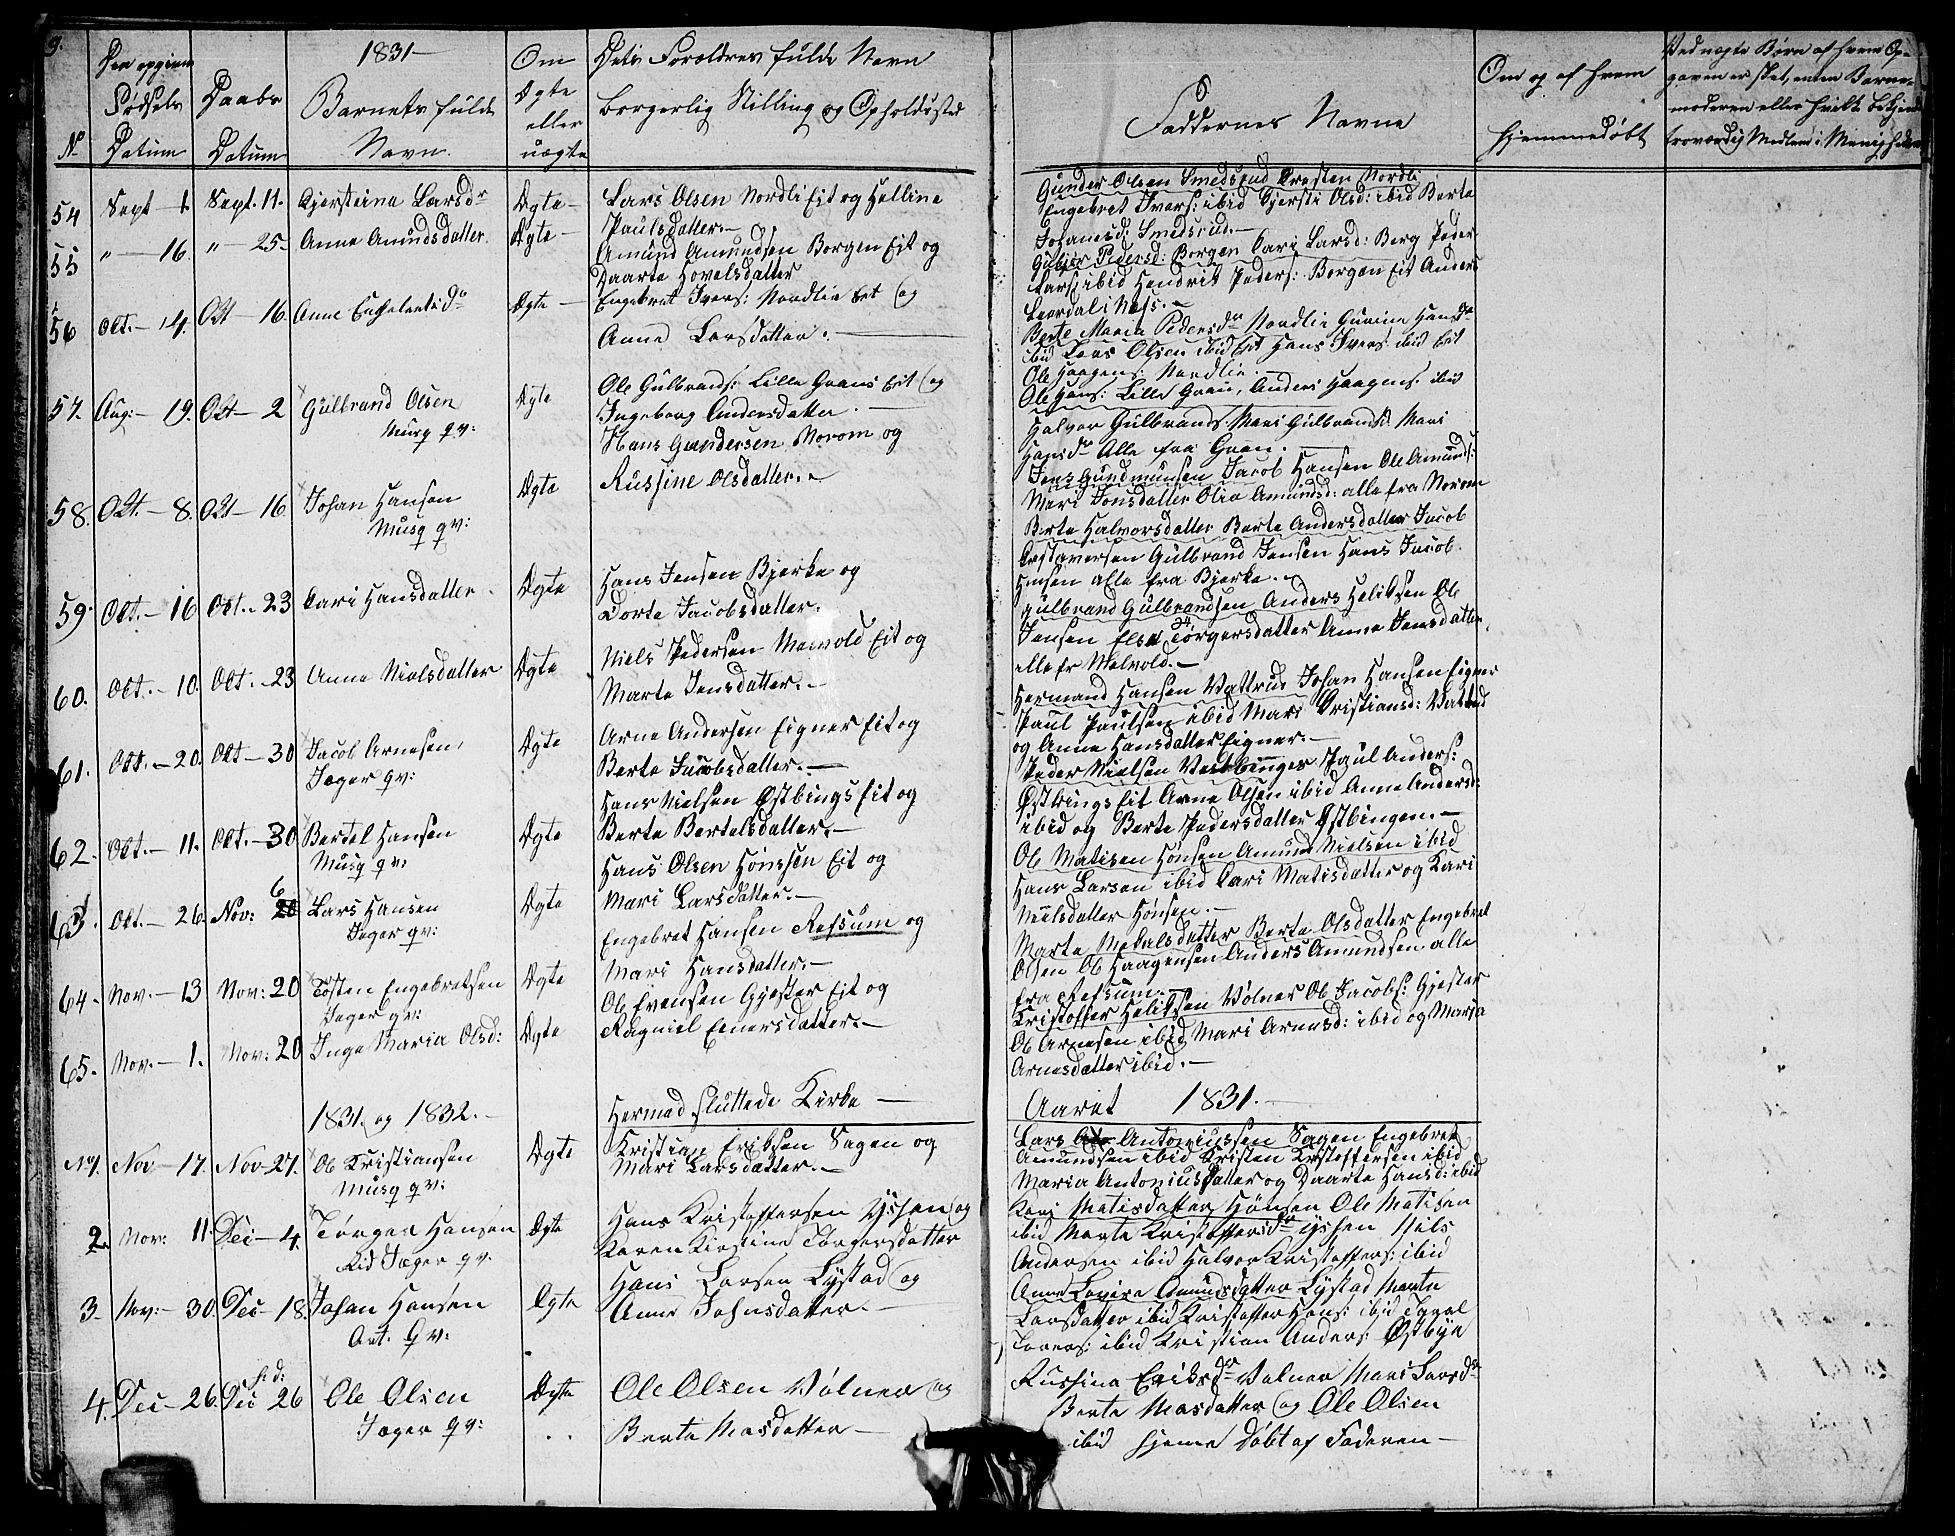 9.
Den opgivne
Fødsels
Datum
Daabs
Datum
1831
Barnets fulde
Navn
Om
Ægte
eller
uægte
Dets Forældres fulde Navn
borgerlig Stilling og Opholdssted
Faddernes Navne
Om og af hvem
hjemmedøbt
Ved uægte Børn af hvem Op-
gaven er sket, enten Barne-
moderen eller hvilk bekjendt
troværdig Medlem i Menigheden
No
54 Sept - 1. Sept. 11. Kjerstina Larsdr Ægte - Lars Olsen Nordli Eit og Helline
Paulsdatter.-
Gunder Olsen Smedsrud Kresten Nordli
Engebret Ivers: ibid Kjersti Olsd: ibid Berte
Johanesd: Smedsrud.-
55 " - 16. " - 25- Anne Amundsdatter. Ægte - Amund Amundsen Borgen Eit og
Daarte Hovelsdatter
Pedersd: Borgen Kari Larsd: Berg Peder
Lars: ibid Hendrik Peders: Borgen Eit Anders
56 Okt. - 4. Okt - 16 Anne Engebretsdr Ægte - Engebret Ivers: Nordlie Eet og
Anne Larsdatter.
Berte Maria Pedersdr Nordlie Hansdr
ibid Lars Olsen ibid Hans Ivers: ibid Eit
Ole Haagens: Nordlie.-
57. Aug: - 19. Okt - 2 Gulbrand Olsen
Musq qv:
Ægte
Ole Gulbrands: Lille Grans Eit og
Ingeborg Andersdatter. -
Ole Hans: Lille Gran, Anders Haagens. ibid
Halvor Gulbrands. Mari Gulbrandsd. Mari
Hansdr Alle fra Gran.
58. Okt. - 8. Okt - 16 Johan Hansen
Musq qv:
Ægte
Hans Gundersen Morom og
Russine Olsdatter.-
Jens Gudmunsen Jacob Hansen Ole Amunds:
Mari Jonsdatter Olia Amundsd: alle fra Morom
59. Okt. - 16 Okt. - 23 Kari Hansdatter. Ægte
Hans Jensen Bjerke og
Dorte Jacobsdatter.
Berte Halvorsdatter Berte Andersdatter Jacob
Gulbrand Jensen Hans Jacob
Hensen alle fra Bjerke.-
60. Okt. - 10. Okt. - 23 Anne Nielsdatter Ægte
Niels Pedersen Melvold Eit og
Marte Jensdatter.-
Gulbrand Gulbrandsen Anders Heliksen Ole
Jensen Else Törgersdatter Anne Jensdatter,
alle fr Melvold.-
61. Okt. - 20. Okt - 30 Jacob Arnesen,
Jæger qv:
Ægte
Arne Andersen Eigner Eit og
Berte Jacobsdatter.-
Hermand Hansen Vattrud Johan Hansen Eigner
Paul Paulsen ibid Mari Kristiansd: Vatrud
og Anne Hansdatter Eigner.-
62. Okt. - 11. Okt. - 30 Bertel Hansen
Musq qv:
Ægte
Hans Nielsen Østbings Eit og
Berte Bertelsdatter.-
Peder Nielsen Vestbinger Paul Anders:
Østbings Eit Arne Olsen ibid Anne Andersd:
ibid og Berte Pedersdatter Østbingen.-
63. Okt. - 26. Nov: 6 20 Lars Hansen
Jæger qv:
Ægte
Hans Olsen Hønsen Eit og
Mari Larsdatter.-
Ole Matisen Hønsen Amund Nielsen ibid
Hans Larsen ibid Kari Matisdatter og Kari
Nielsdatter Hønsen.-
64. Nov. - 13 Nov: 20 Tosten Engebretsen
Jæger qv:
Ægte
Engebret Hansen Refsum og
Mari Hansdatter.-
Marte Mekalsdatter Berte Olsdatter Engebret
Olsen Ole Haagensen Anders Amundsen alle
fra Refsum.-
65. Nov. - 1. Nov: 20 Inge Maria Olsd: Ægte
Ole Evensen Gjester Eit og
Ragniel Einersdatter.-
Kristoffer Heliksen Vølner Ole Jacobs: Gjester
Ole Arnesen ibid Mari Arnesd: ibid og Maria
Arnesdatter ibid.-
1831. og 1832.-
Hermed sluttede Kirke -
Aaret 1831.-
No1. Nov - 17. Nov - 27. Ole Kristiansen
Musq qv:
Ægte
Kristian Eriksen Sagen og
Mari Larsdatter.-
Lars Antoniussen Sagen Engebret
Amundsen ibid Kristen Kristoffersen ibid
Maria Antoniusdatter og Daarte Hansd: ibid
2. Nov: 11 Dec - 4. Törger Hansen
Rid Jæger qv.
Ægte
Hans Kristoffersen Ijshen og
Karen Kirstine Törgersdatter
Kari Matisdatter Hønsen Ole Matisen
ibid Marte Kristoffersdr Nils
Andersen ibid Halvor Kristoffers: ibid
3. Nov: - 30. Dec - 18. Johan Hansen
Art. qv:
Ægte
Hans Larsen Lystad og
Anne Johnsdatter.-
Anne Lovise Amundsdatter Lystad Marte
Larsdatter ibid Kristoffer Hans: ibid
Torers: ibid Kristian Anders: Østbye
4. Dec - 26. Dec s: d: 26 Ole Olsen
Jæger qv:
Ægte
Ole Olsen Vølner og
Berte Masdatter -
Russine Eriksdr Volner Mari Larsdr
Berte Masdatter og Ole Olsen
ibid hjeme døbt af Faderen -